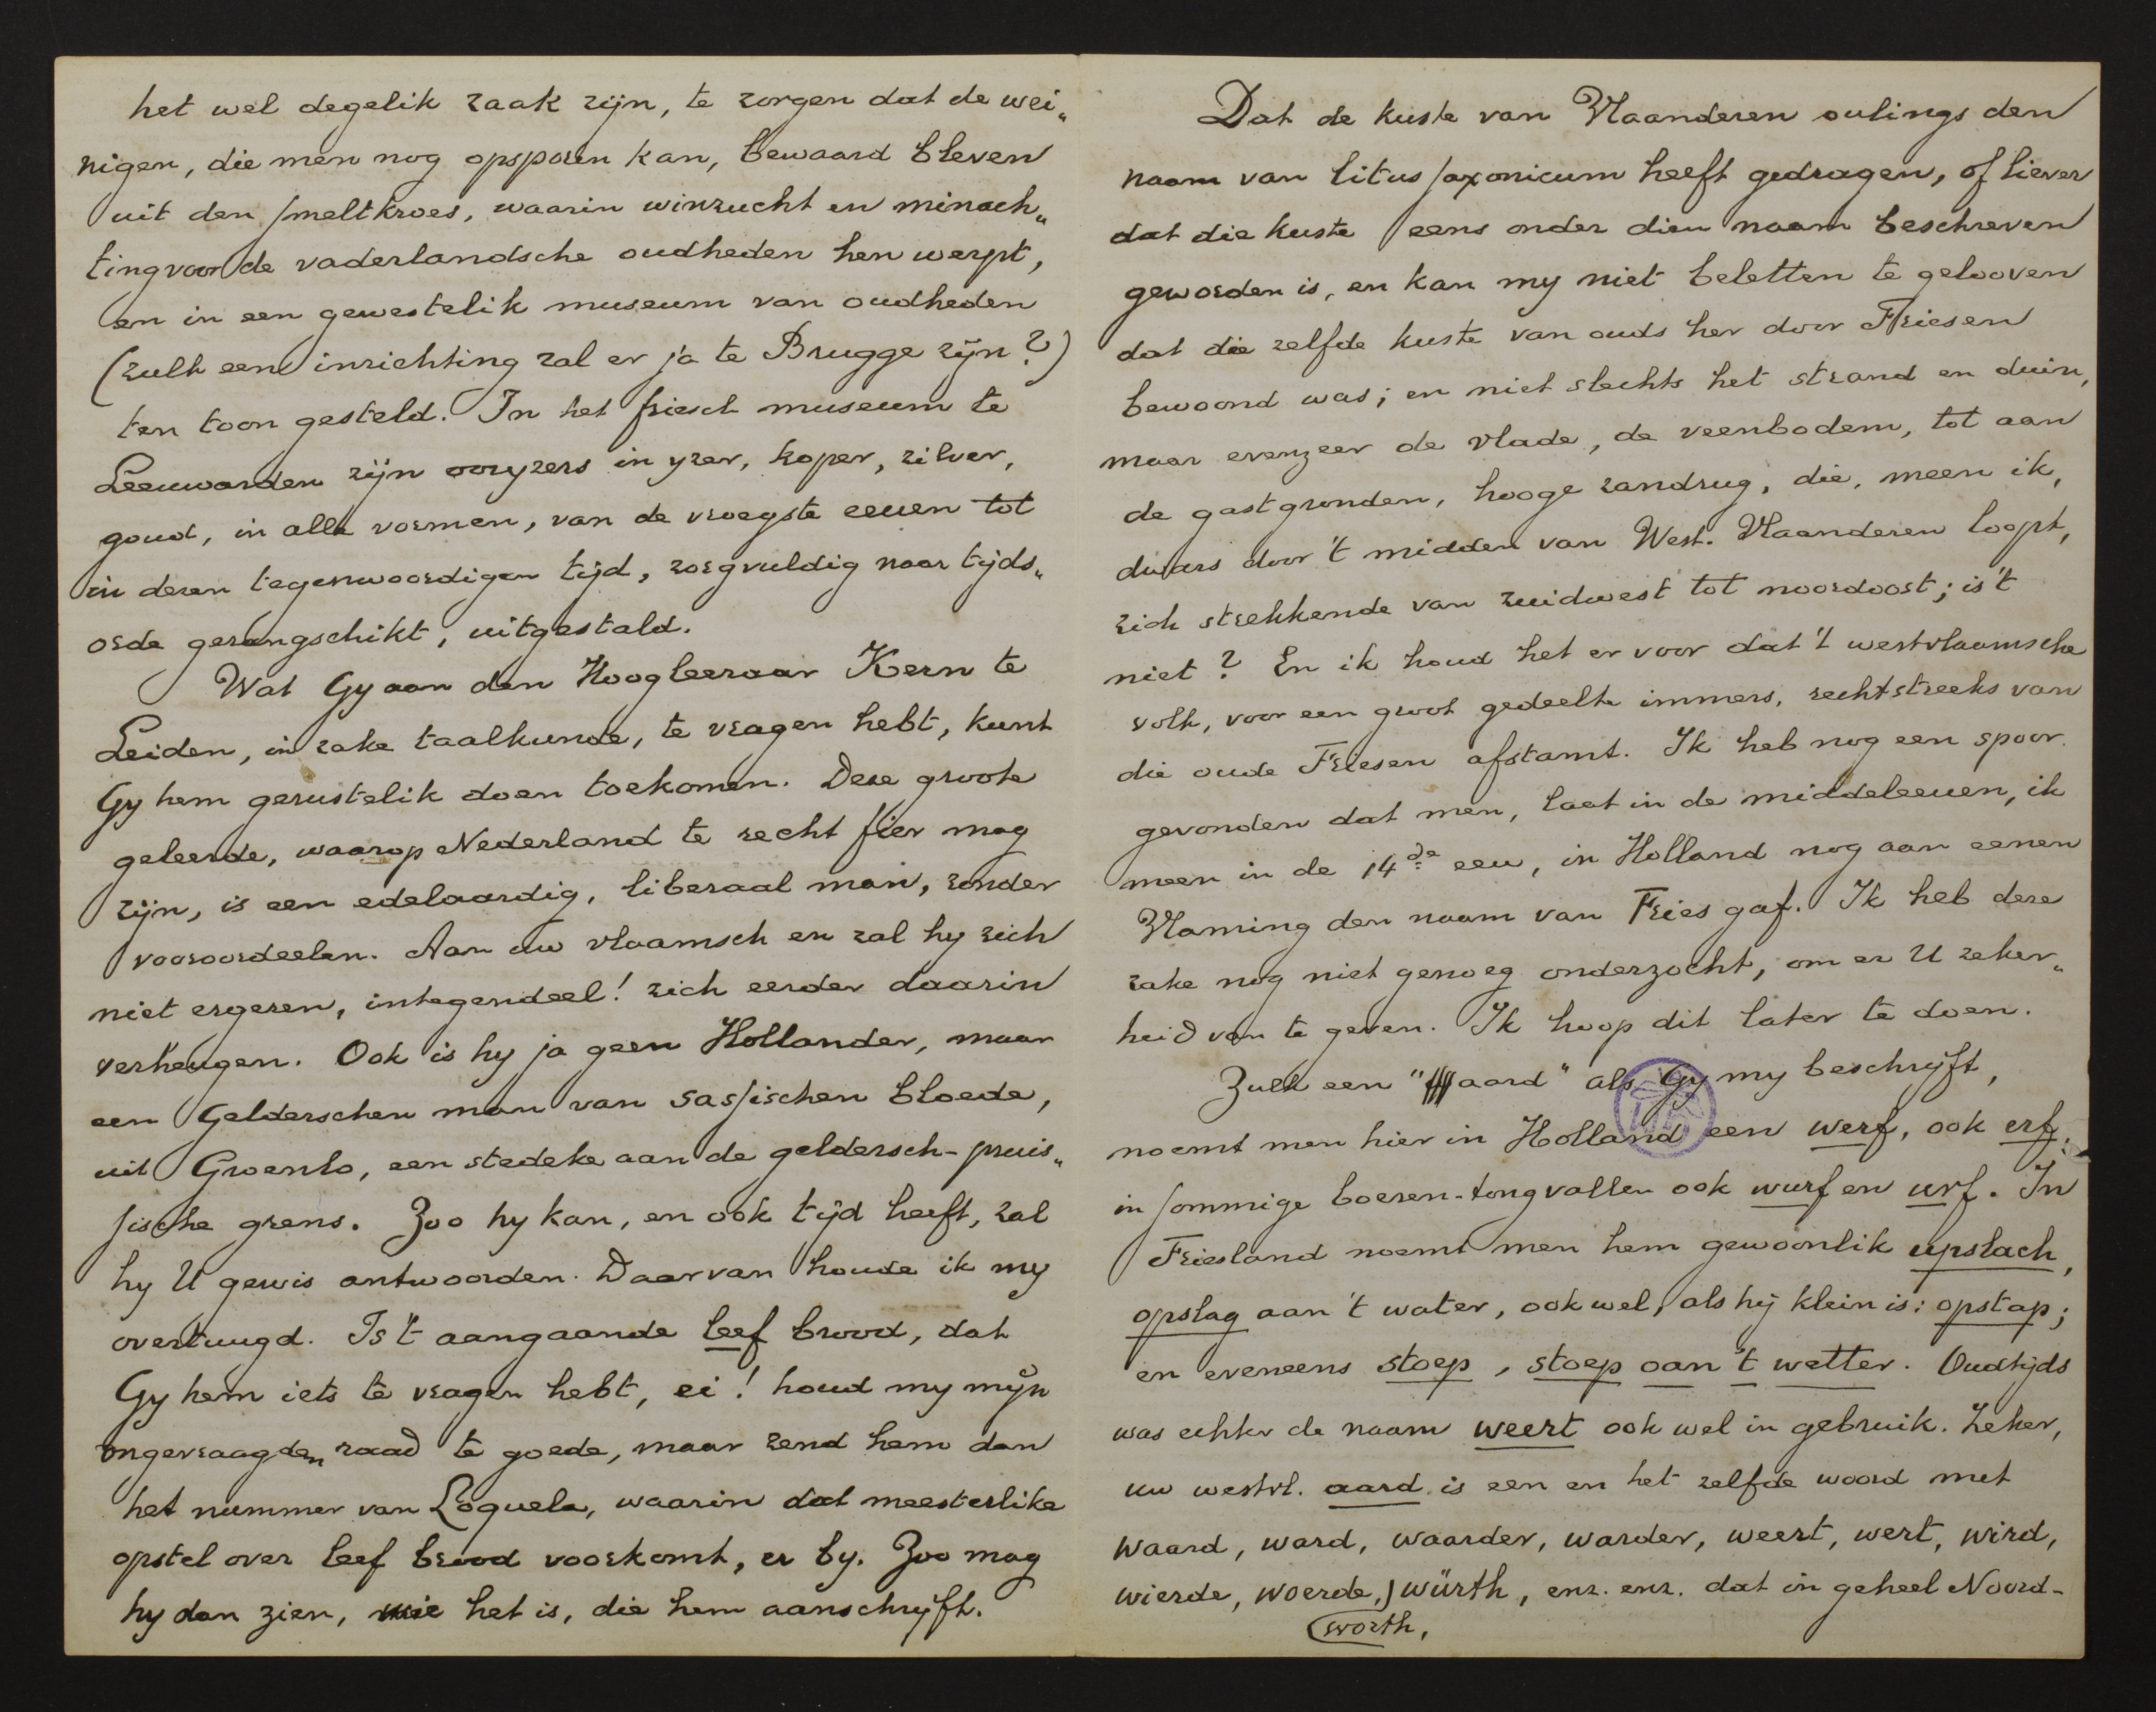 het wel degelik zaak zijn, te zorgen dat de wei„
nigen, die men nog opsporen kan, bewaard bleven
uit den smeltkroes, waarin winzucht en minach„
ting voor de vaderlandsche oudheden hen werpt,
en in een gewestelik museum van oudheden
(zulk eene inrichting zal er ja te Brugge zijn?)
ten toon gesteld. In het friesch museum te
Leeuwarden zijn ooryzers in yzer, koper, zilver,
goud, in alle vormen, van de vroegste eeuen tot
in dezen tegenwoordigen tijd, zorgvuldig naar tijds„
orde gerangschikt, uitgestald.
Wat Gy aan den Hoogleeraar Kern te
Leiden, in zake taalkunde, te vragen hebt, kunt
Gy hem gerustelik doen toekomen. Deze groote
geleerde, waarop Nederland te recht fier mag
zijn, is een edelaardig, liberaal man, zonder
vooroordeelen. Aan uw vlaamsch en zal hy zich
niet ergeren, integendeel! zich eerder daarin
verheugen. Ook is hy ja geen Hollander, maar
een Gelderschen man van sassischen bloede,
uit Groenlo, een stedeke aan de geldersch-pruis„
sische grens. Zoo hy kan, en ook tijd heeft, zal
hy U gewis antwoorden. Daarvan houde ik my
overtuugd. Is 't aangaande leef brood, dat
Gy hem iets te vragen hebt, ei! houd my mijn
ongevraagden raad te goede, maar zend hem dan
het nummer van Loquela, waarin dat meesterlike
opstel over leef brood voorkomt, er by. Zoo mag
hy dan zien, wie het is, die hem aanschryft.
Dat de kuste van Vlaanderen oulings den
naam van litus saxonicum heeft gedragen, of liever
dat die kuste eens onder dien naam beschreven
geworden is, en kan my niet beletten te gelooven
dat die zelfde kuste van ouds her door Friesen
bewoond was; en niet slechts het strand en duin,
maar evenzeer de vlade, de veenbodem, tot aan
de gastgronden, hooge zandrug, die, meen ik,
dwars door 't midden van West-Vlaanderen loopt,
zich strekkende van zuidwest tot noordoost; is 't
niet? En ik houd het er voor dat 't westvlaamsche
volk, voor een groot gedeelte immers, rechtstreeks van
die oude Friesen afstamt. Ik heb nog een spoor
gevonden dat men, laat in de middeleeuen, ik
meen in de 14de eeu, in Holland nog aan eenen
Vlaming den naam van Fries gaf. Ik heb deze
zake nog niet genoeg onderzocht, om er U zeker„
heid van te geven. Ik hoop dit later te doen.
Zulk een "aard" als Gy my beschrijft,
noemt men hier in Holland een werf, ook erf;
in sommige boeren-tongvallen ook wurf en urf. In
Friesland noemt men hem gewoonlik upslach,
opslag aan 't water, ook wel, als hij klein is: opstap;
en eveneens stoep, stoep oan 't wetter. Oudtijds
was echter de naam weert ook wel in gebruik. Zeker,
uw westvl. aard is een en het zelfde woord met
waard, ward, waarder, warder, weert, wert, wird,
wierde, woerde, worth, würth, enz. enz. dat in geheel Noord-